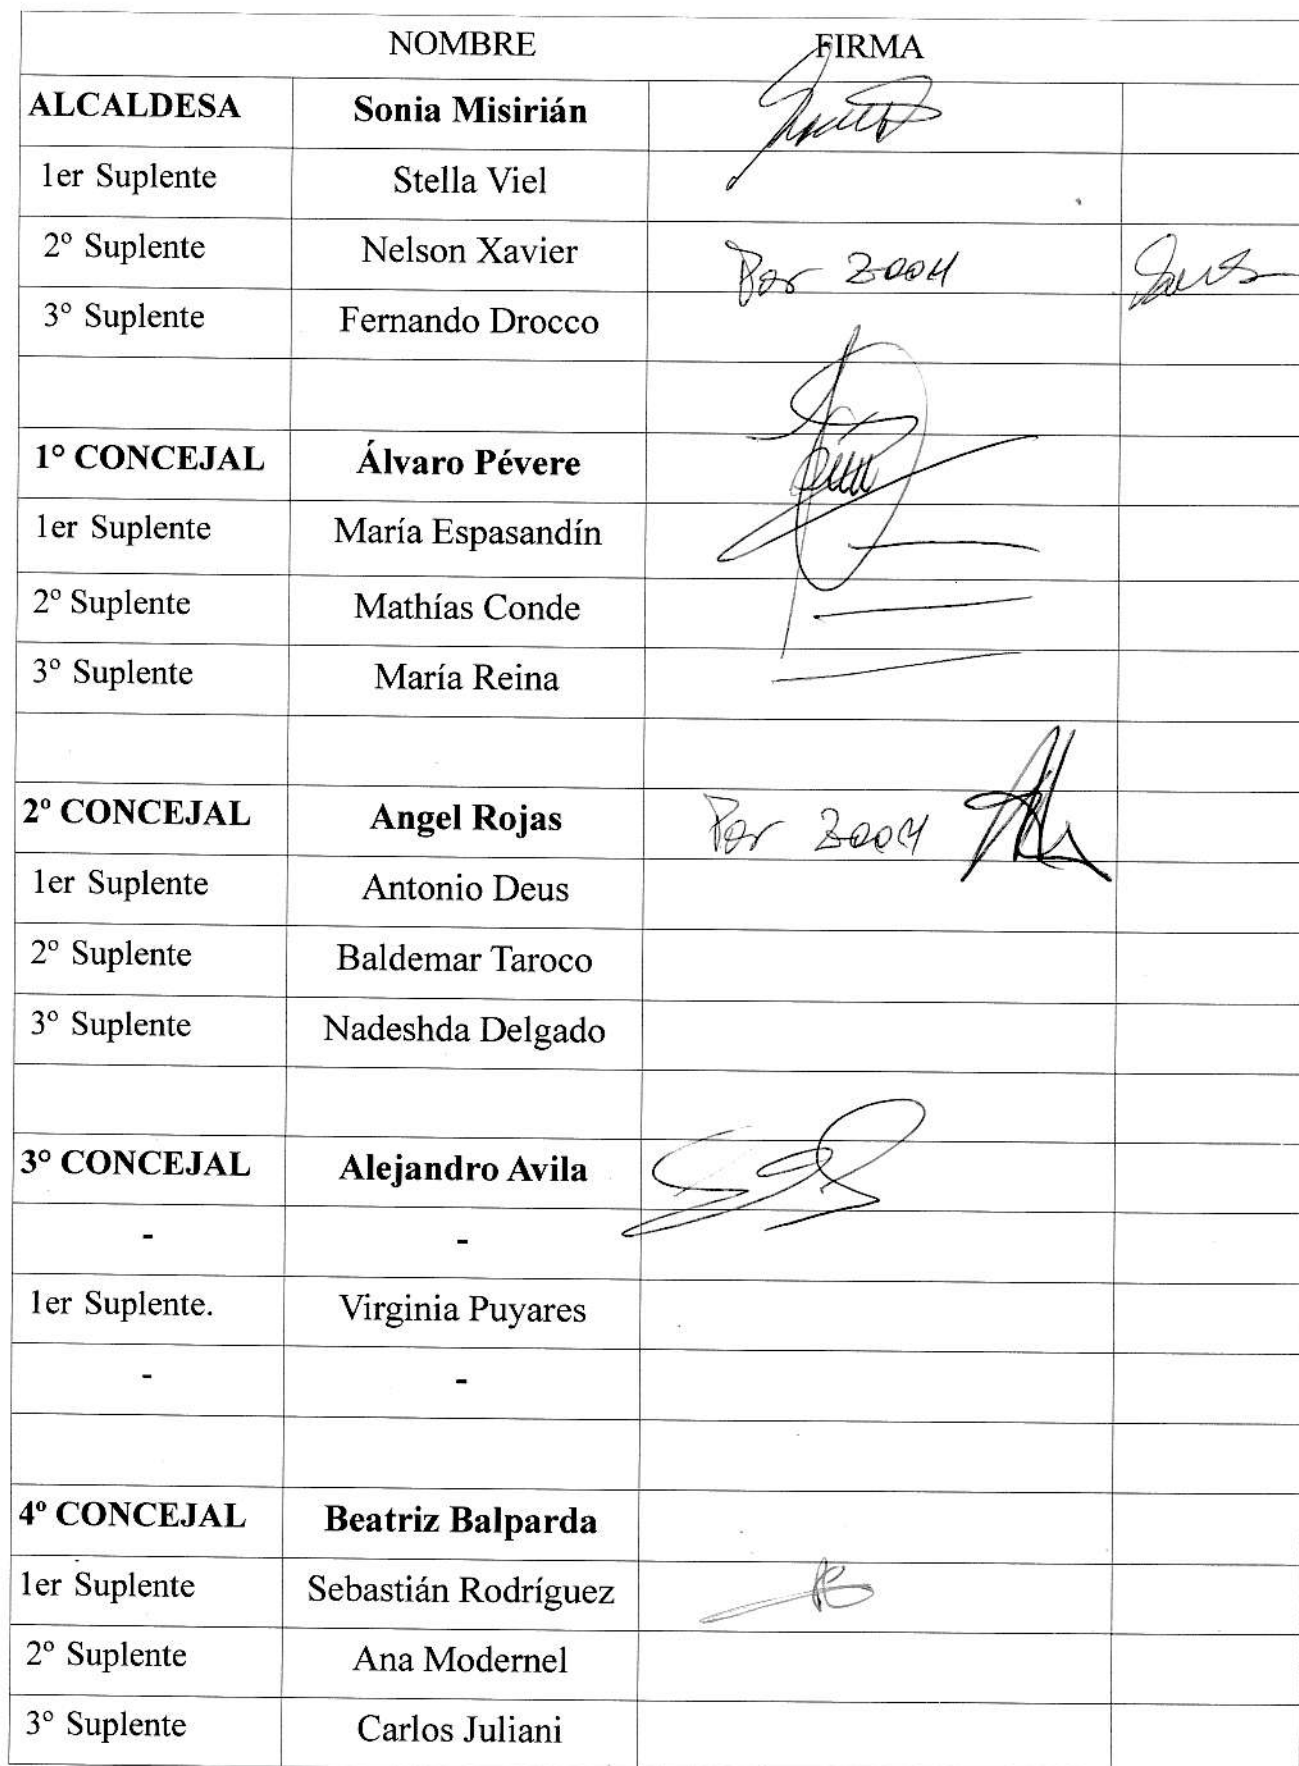 NOMBRE FIRMA
ALCALDESA Sonia Misirián
1er Suplente Stella Viel
2º Suplente Nelson Xavier Por Zoom
3º Suplente Fernando Drocco
1º CONCEJAL Álvaro Pévere
1er Suplente María Espasandín
2º Suplente Mathías Conde
3º Suplente María Reina
2º CONCEJAL Angel Rojas Por Zoom
1er Suplente Antonio Deus
2º Suplente Baldemar Taroco
3º Suplente Nadeshda Delgado
3º CONCEJAL Alejandro Avila
- -
1er Suplente. Virginia Puyares
- -
4º CONCEJAL Beatriz Balparda
1er Suplente Sebastián Rodríguez
2º Suplente Ana Modernel
3º Suplente Carlos Juliani